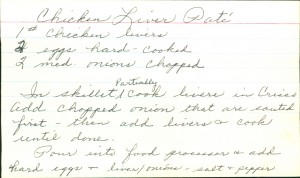 Chicken Liver Paté
1# chicken livers
2 eggs - hard - cooked
2 med. onions chopped
Partially
In skillet / cook livers in Crisco
add chopped onion that are sauted
first - then add livers & cook
until done.
Pour into food processor & add
hard eggs & liver/onions - salt & pepper